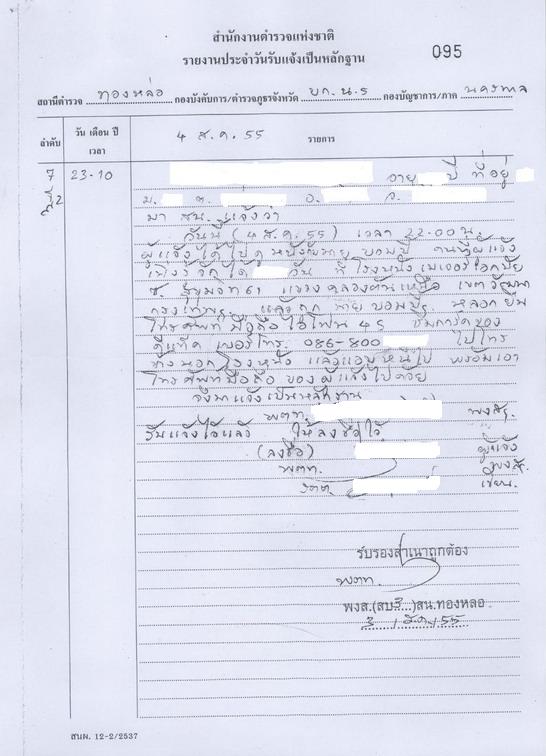 สำนักงานตำรวจแห่งชาติ
รายงานประจำวันรับแจ้งเป็นหลักฐาน
095
สถานีตำรวจ ทองหล่อ กองบังคับการ/ตำรวจภูธรจังหวัด บก.น.5 กองบัญชาการ/ภาค นครบาล
ลำดับ วัน เดือน ปี เวลา 4 ส.ค. 55 รายการ
7 23-10 อายุ ปี ที่อยู่
ม. ต. อ. จ.
มา สน. แจ้งว่า
วันนี้ (4 ส.ค. 55) เวลา 22.00 น.
ผู้แจ้งได้ไปดูหนังกับนาย บอมบ์ คนที่ผู้แจ้ง
เพิ่งรู้จักได้ วัน ที่โรงหนัง เมเจอร์เอกมัย
ซ. สุขุมวิท 61 แขวง คลองตันเหนือ เขต วัฒนา
กรุงเทพฯ แล้วถูก นาย บอมบ์ หลอก ยืม
โทรศัพท์ มือถือ ไอโฟน 4S ซิมการ์ดของ
ดีแท็ค เบอร์โทร. 086-800 ไปโทร
ข้างนอกโรงหนัง แล้วแอบหนีไป พร้อมเอา
โทรศัพท์มือถือ ของผู้แจ้งไปด้วย
จึงมาแจ้งเป็นหลักฐาน
พ.ต.ท. พงส.
รับแจ้งไว้แล้ว ให้ลงชื่อไว้
(ลงชื่อ) ผู้แจ้ง
พ.ต.ท. พงส.
เขียน
รับรองสำเนาถูกต้อง
พ.ต.ท.
พงส.(สบ3...)สน.ทองหล่อ
สนผ. 12-2/2537